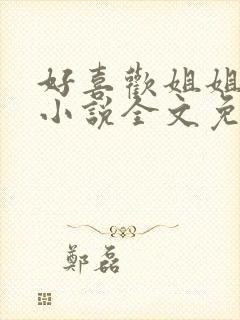 好喜歡姐姐
小說全文免
鄭磊